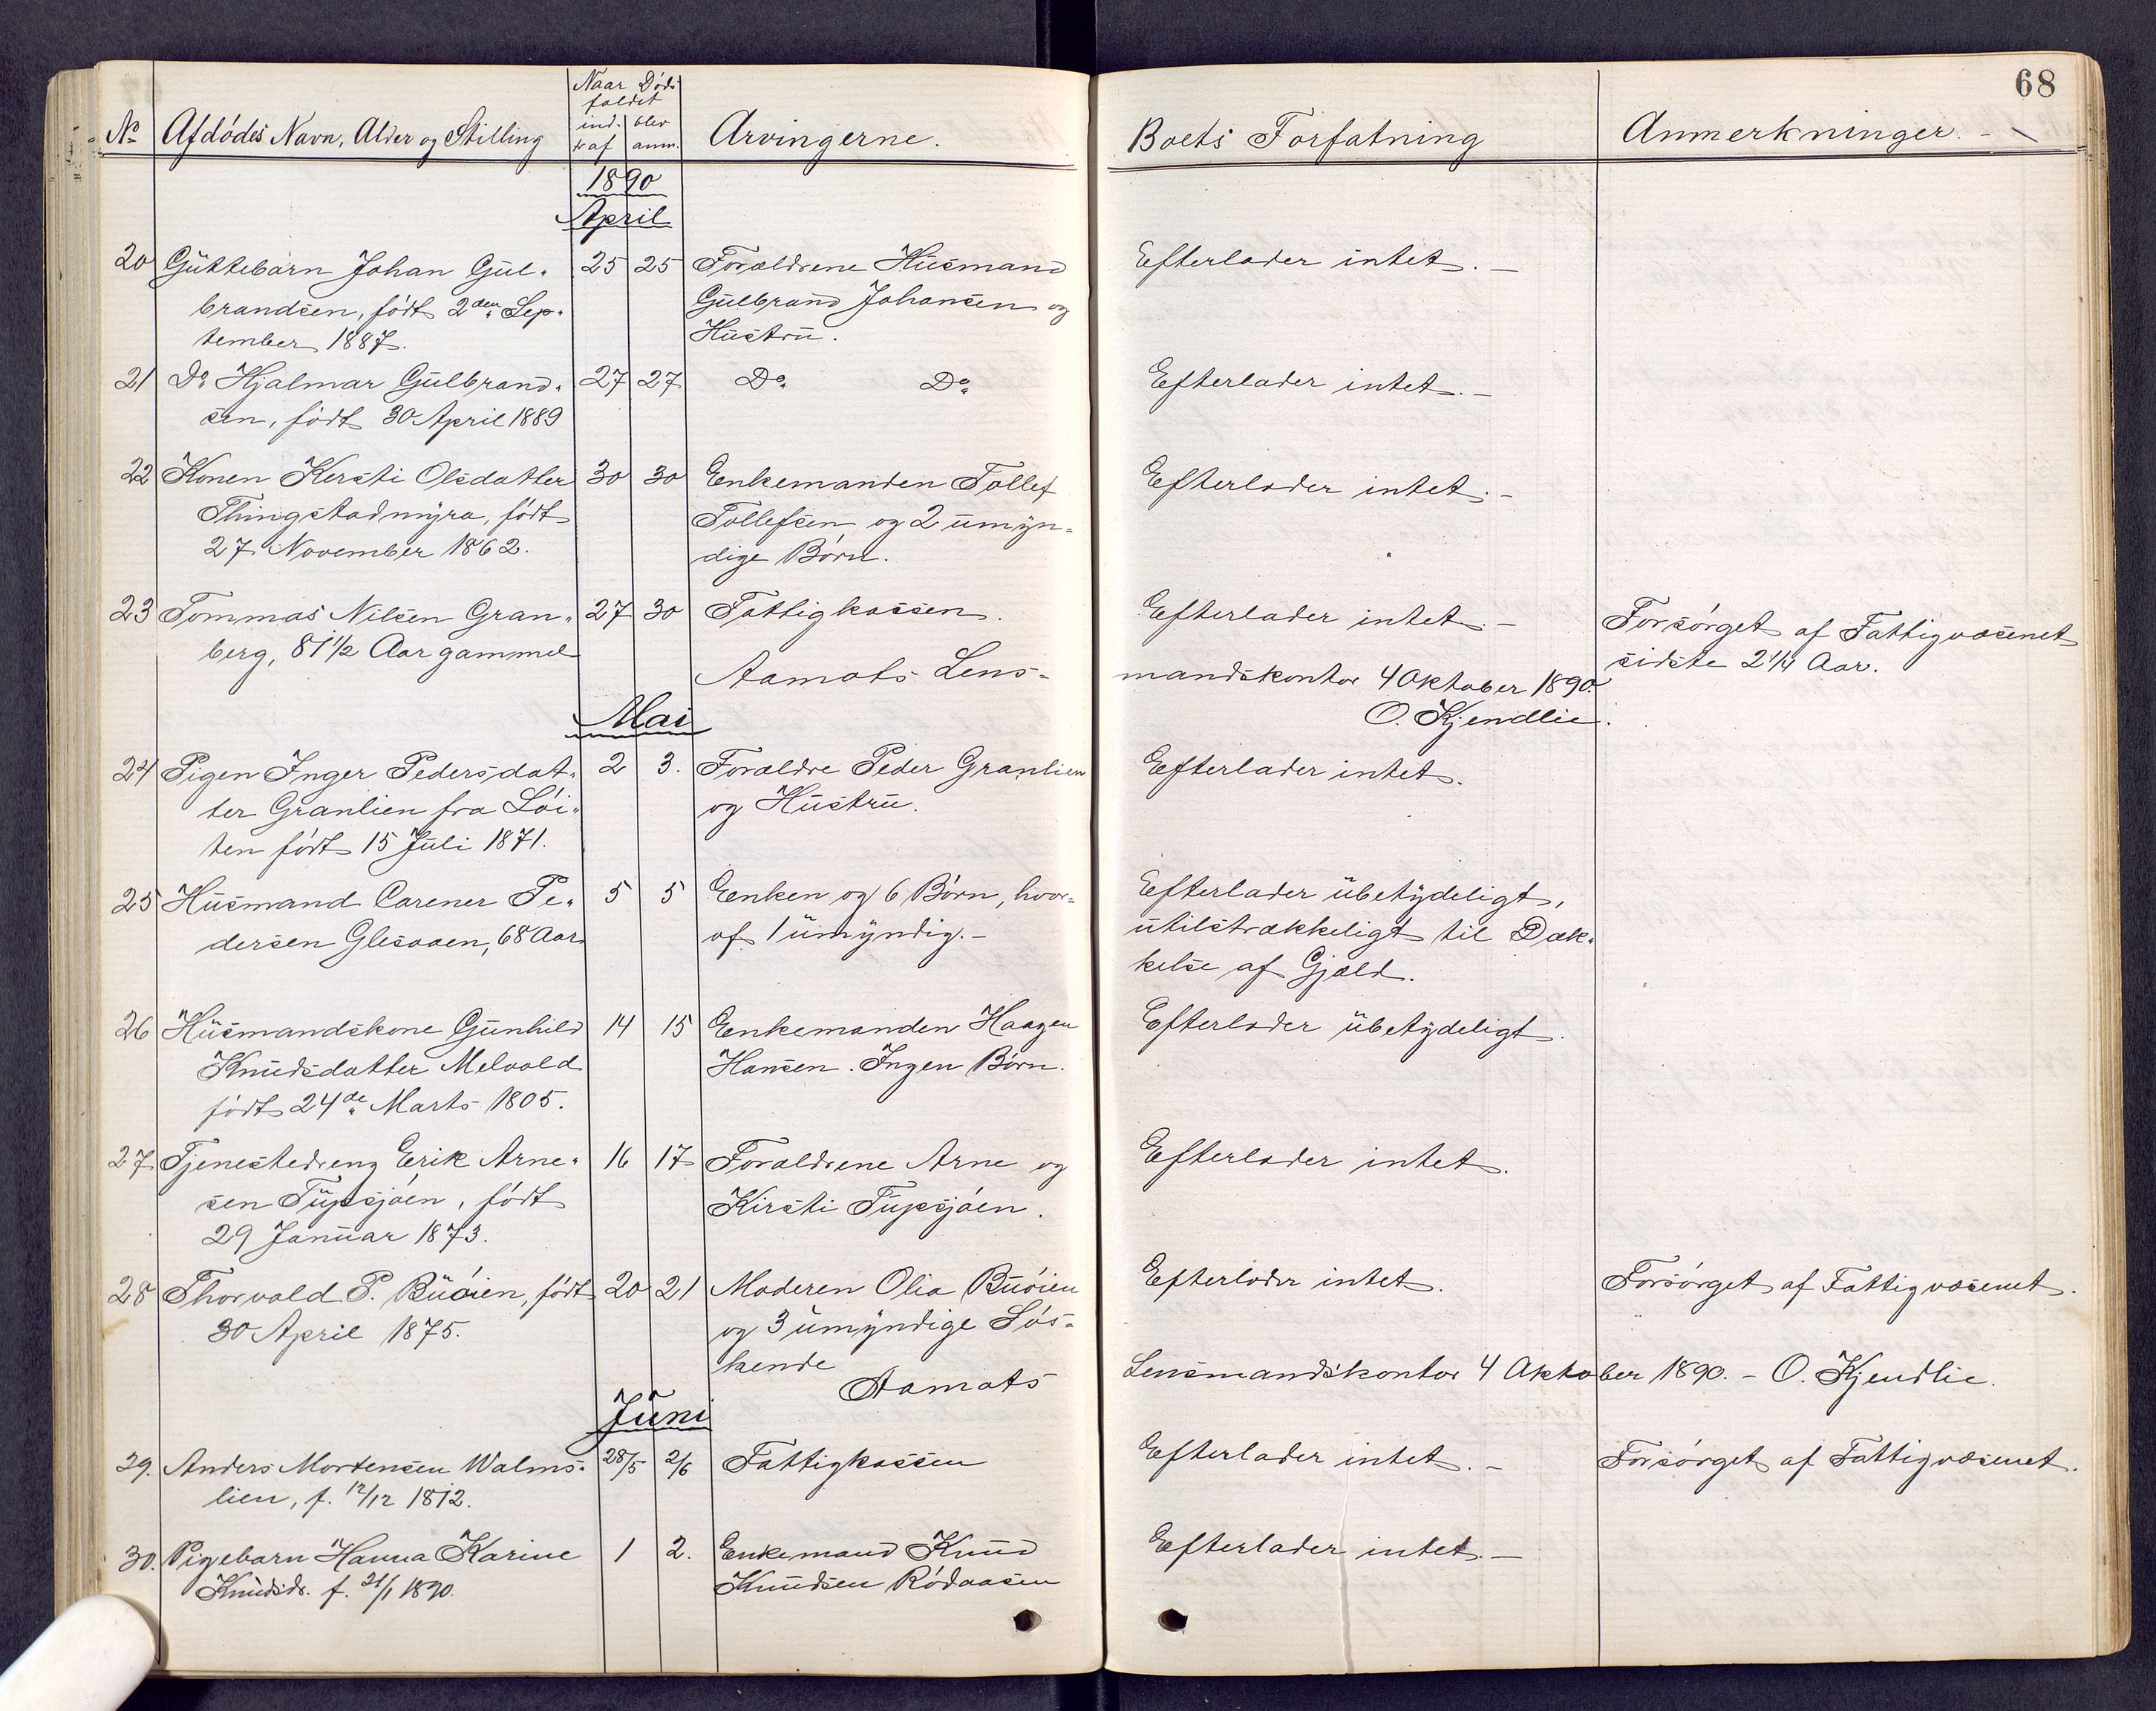 68
Naar Døds
faldet
ind- blev
traf anm.
No Afdødes Navn, Alder og Stilling Arvingerne. Boets Forfatning Anmerkninger. -
1890
April
20 Guttebarn Johan Gul- 25 25 Forældrene Husmand Efterlader intet. -
brandsen, født 2den Sep- Gulbrand Johansen og
tember 1887. Hustru.
21 Do Hjalmar Gulbrand- 27 27 Do Do Efterlader intet. -
sen, født 30 April 1889
22 Konen Kersti Olsdatter 30 30 Enkemanden Tollef Efterlader intet. -
Thingstadmyra, født Tollefsen og 2 umyn-
27 November 1862. dige Børn.
23 Tommas Nilsen Gran- 27 30 Fattigkassen. Efterlader intet. - Forsørget af Fattigvæsenet
berg, 81 1/2 Aar gammel sidste 2 1/4 Aar.
Aamots Lens- mandskontor 4 Oktober 1890.
O. Kjendlie.
Mai
24 Pigen Inger Pedersdat- 2 3. Forældre Peder Granlien Efterlader intet.
ter Granlien fra Løi- og Hustru.
ten født 15 Juli 1871.
25 Husmand Carener Pe- 5 5 Enken og 6 Børn, hvor- Efterlader ubetydeligt,
dersen Glesaaen, 68 Aar af 1 umyndig. - utilstrækkeligt til Dæk-
kelse af Gjæld.
26 Husmandskone Gunhild 14 15 Enkemanden Haagen Efterlader ubetydeligt.
Knudsdatter Melvold Hansen. Ingen Børn.
født 24de Marts 1805.
27 Tjenestedreng Erik Arne- 16 17 Forældrene Arne og Efterlader intet.
sen Tupsjøen, født Kirsti Tupsjøen.
29 Januar 1873.
28 Thorvald P. Buøien, født 20 21 Moderen Olia Buøien Efterlader intet. Forsørget af Fattigvæsenet.
30 April 1875. og 3 umyndige Søs-
kende
Aamots Lensmandskontor 4 Oktober 1890. - O. Kjendlie.
Juni
29. Anders Mortensen Walms- 28/5 2/6 Fattigkassen Efterlader intet. - Forsørget af Fattigvæsenet.
lien, f. 12/12 1812.
30. Pigebarn Hanna Karine 1 2. Enkemand Knud Efterlader intet. -
Knudsdr. f. 21/1 1890. Knudsen Rødaasen